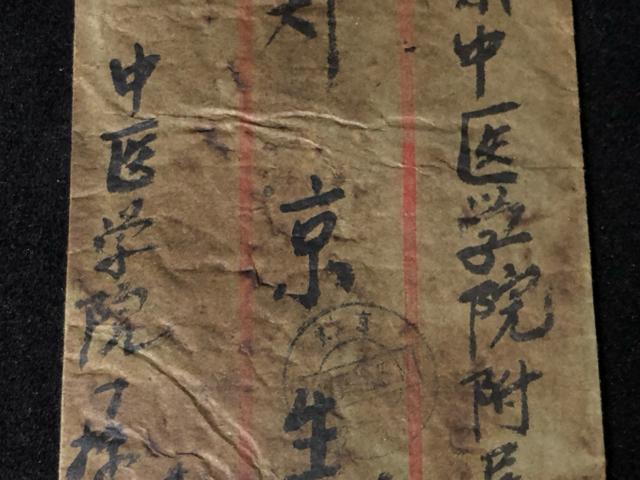 京中医学院附
刘京生
中医学院